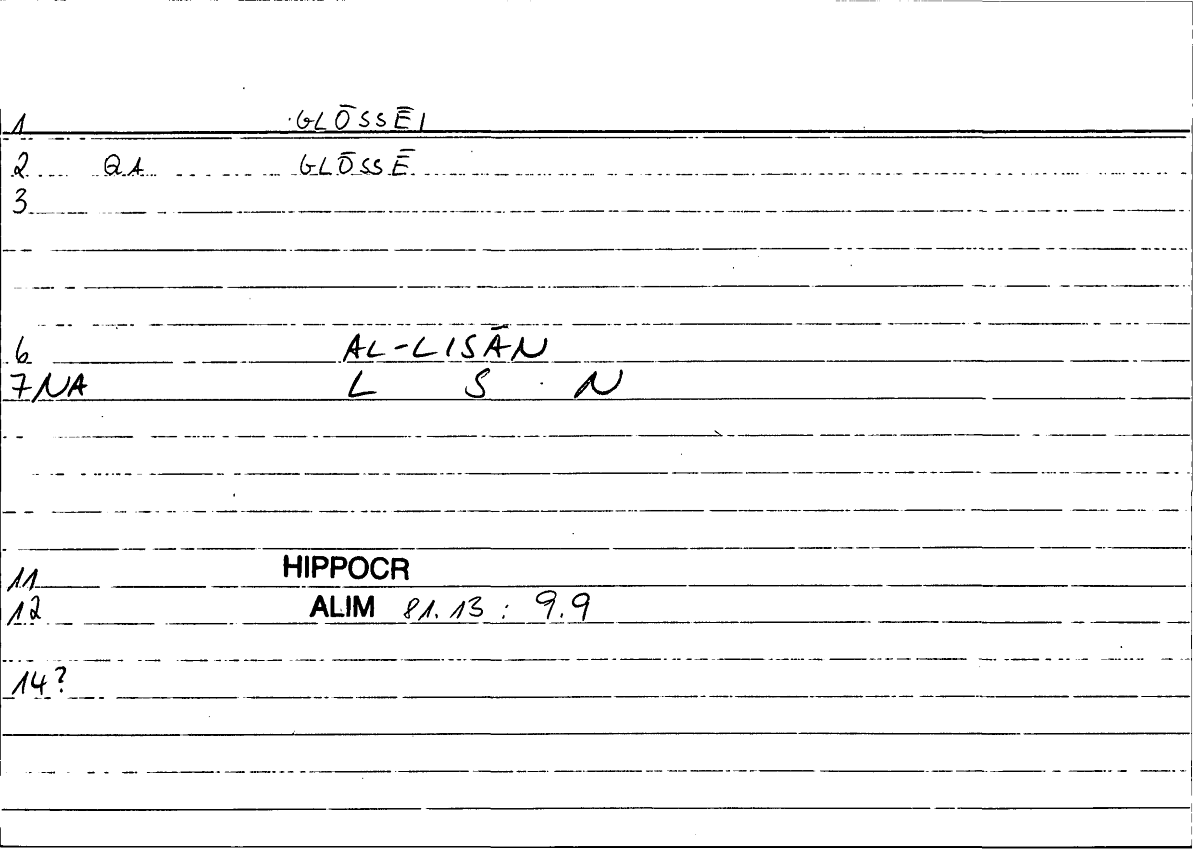 1 GLŌSSĒI
2 QA GLŌSSĒ
3
6 AL-LISĀN
7 NA L S N
11 HIPPOCR
12 ALIM 81.13 : 9.9
14?